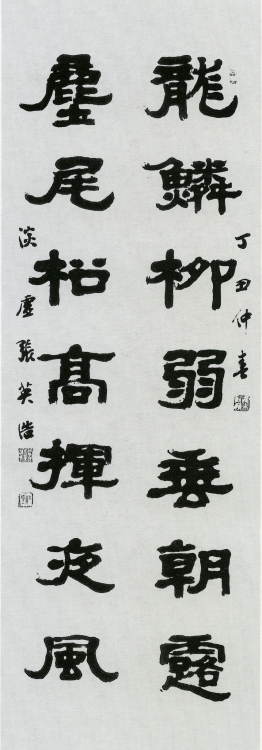 丁丑仲春
龍鱗柳弱垂朝露
麈尾松高揮夜風
淡虛張英浩